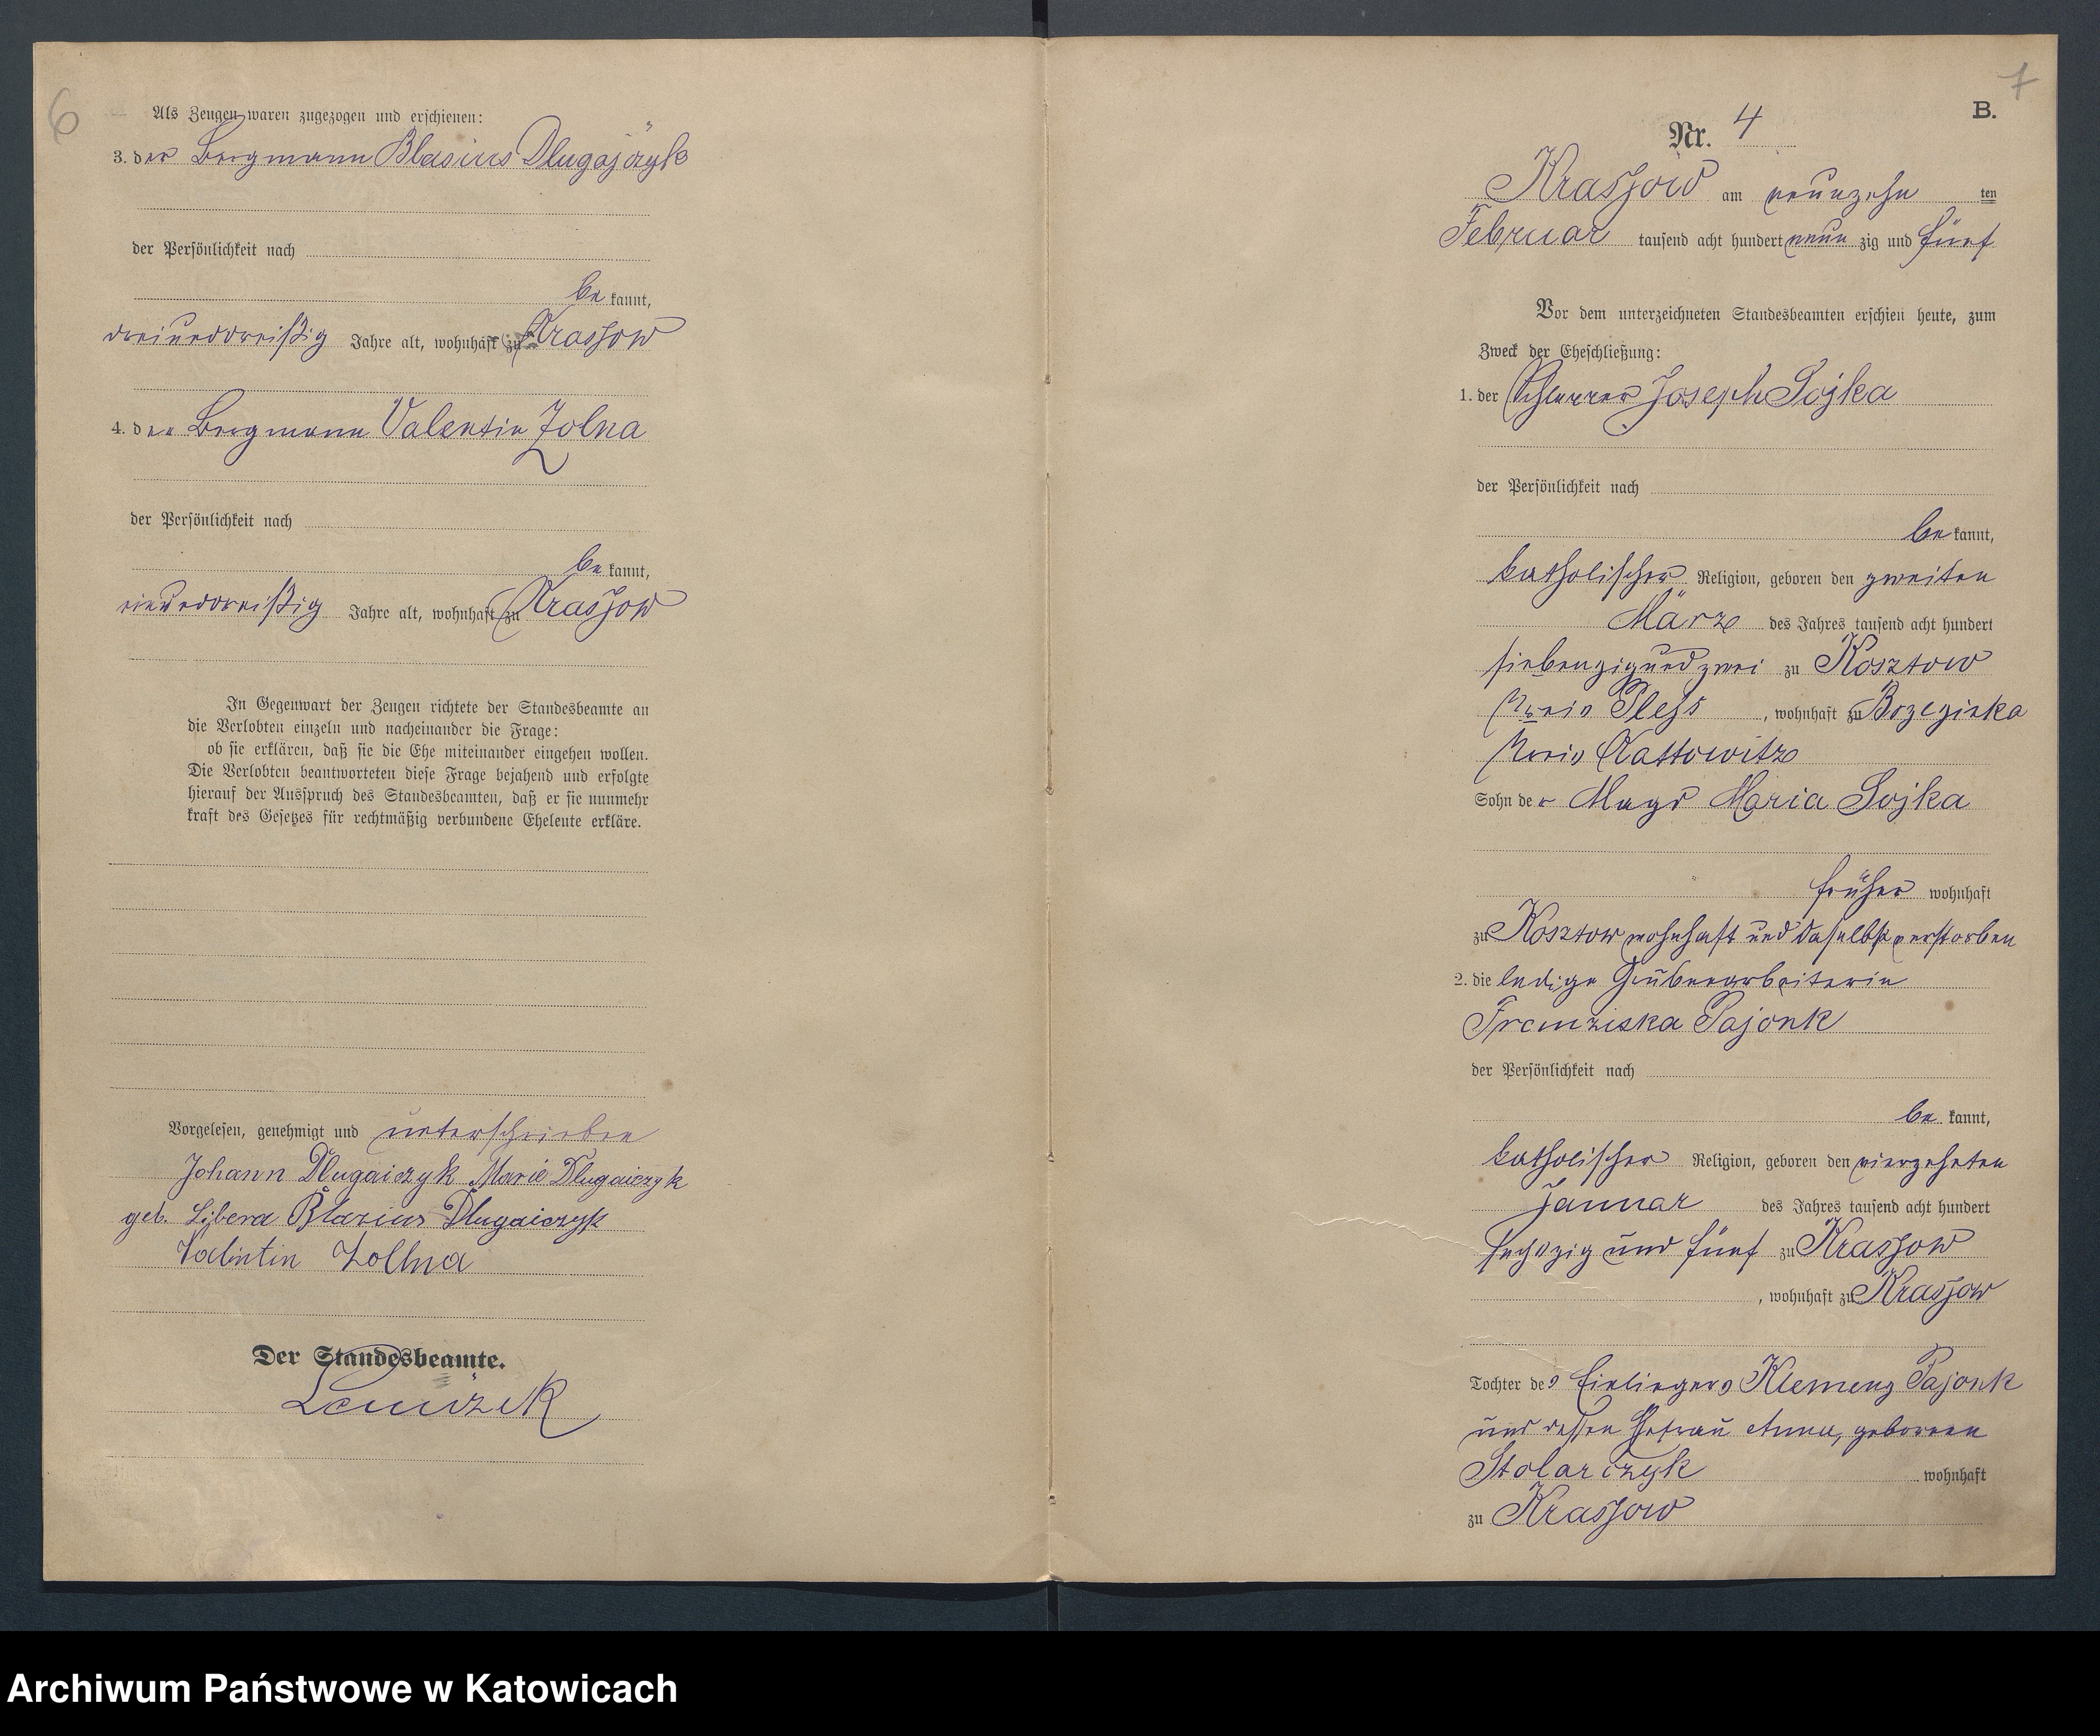 6
Als Zeugen waren zugezogen und erschienen:
3. der Bergmann Blasius Dlugajczyk
der Persönlichkeit nach
bekannt,
dreiunddreißig Jahre alt, wohnhaft zu Krassow
4. der Bergmann Valentin Zolna
der Persönlichkeit nach
bekannt,
einunddreißig Jahre alt, wohnhaft zu Krassow
In Gegenwart der Zeugen richtete der Standesbeamte an
die Verlobten einzeln und nacheinander die Frage:
ob sie erklären, daß sie die Ehe miteinander eingehen wollen.
Die Verlobten beantworteten diese Frage bejahend und erfolgte
hierauf der Ausspruch des Standesbeamten, daß er sie nunmehr
kraft des Gesetzes für rechtmäßig verbundene Eheleute erkläre.
Vorgelesen, genehmigt und unterschrieben
Johann Dlugaiczyk Marie Dlugaiczyk
geb. Libera Blasius Dlugaiczyk
Valintin Zollna
Der Standesbeamte.
7
B.
Nr. 4
Krassow am neunzehn ten
Februar tausend acht hundert neun zig und fünf
Vor dem unterzeichneten Standesbeamten erschien heute, zum
Zweck der Eheschließung:
1. der Joseph Sojka
der Persönlichkeit nach
bekannt,
katholischer Religion, geboren den zweiten
März des Jahres tausend acht hundert
siebenzig und zwei zu Kosztow
Kreis Pleß, wohnhaft zu Brzezinka
Kreis Kattowitz
Sohn der Magd Maria Sojka
früher wohnhaft
zu Kosztow wohnhaft und daselbst verstorben
2. die ledige Grubenarbeiterin
Franziska Pajonk
der Persönlichkeit nach
bekannt,
katholischer Religion, geboren den vierzehnten
Januar des Jahres tausend acht hundert
sechszig und fünf zu Krassow
, wohnhaft zu Krassow
Tochter des Einliegers Klemenz Pajonk
und dessen Ehefrau Anna, geborenen
Stolarczyk wohnhaft
zu Krassow
Archiwum Państwowe w Katowicach